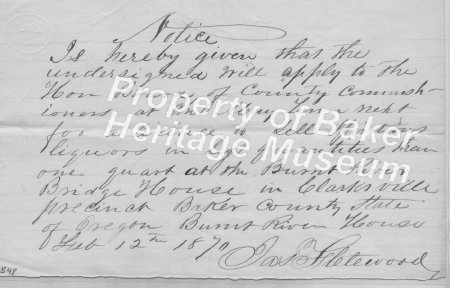 Notice
Is hereby given that the
undersigned will apply to the
Hon Board of County Commissi-
ioners at their regular term next
for a license to sell
liquors in less quantities than
one quart at the Burnt River
Bridge House in Clarksville
precinct Baker County State
of Oregon Burnt River House
Feb 12th 1870
Jas
548
Property of Baker
Heritage Museum